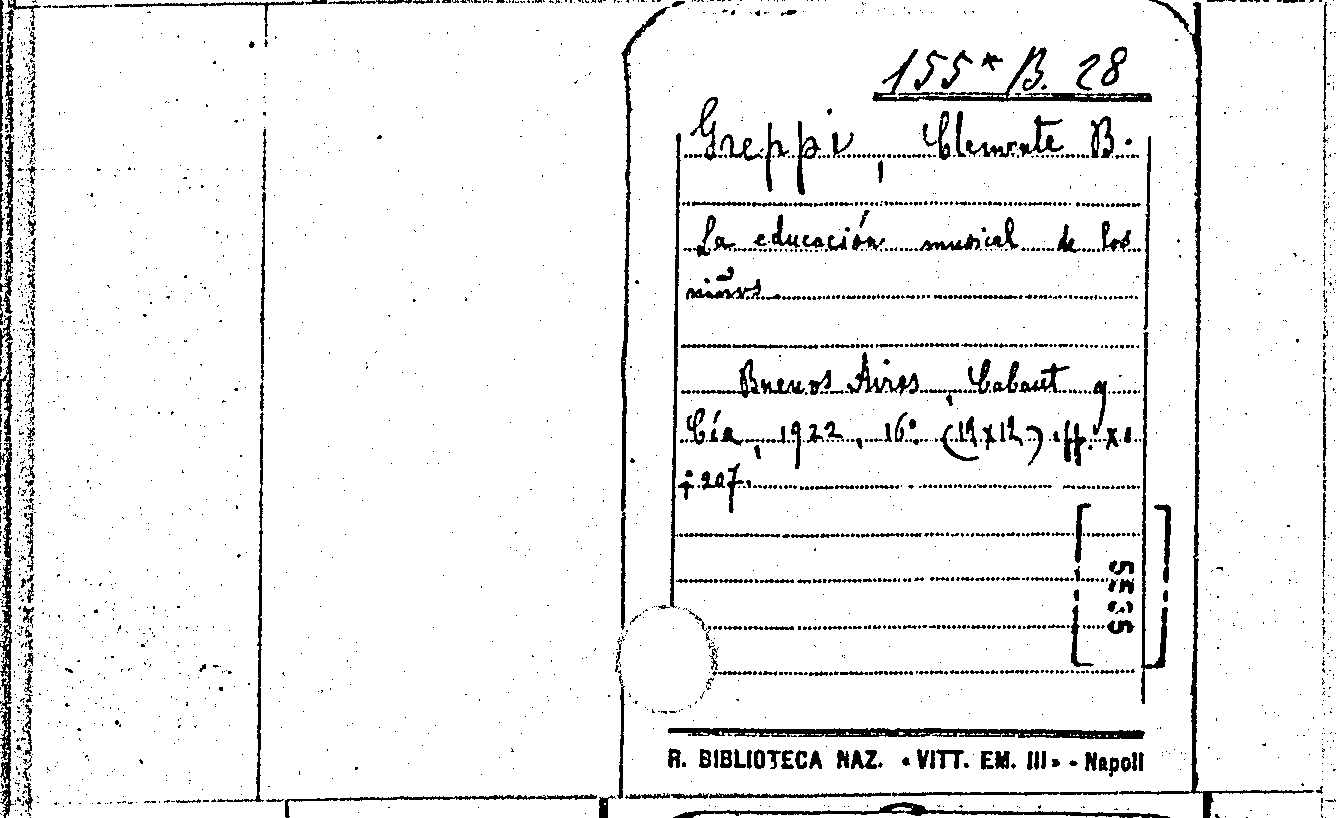 155* B. 28
Greppi, Clemente B.
La educación musical de los
niños
Buenos Aires, Cabaut y
Cía, 1922, 16°. (19x12) pp. XI
+ 207.
R. BIBLIOTECA NAZ. «VITT. EM. III» - Napoli